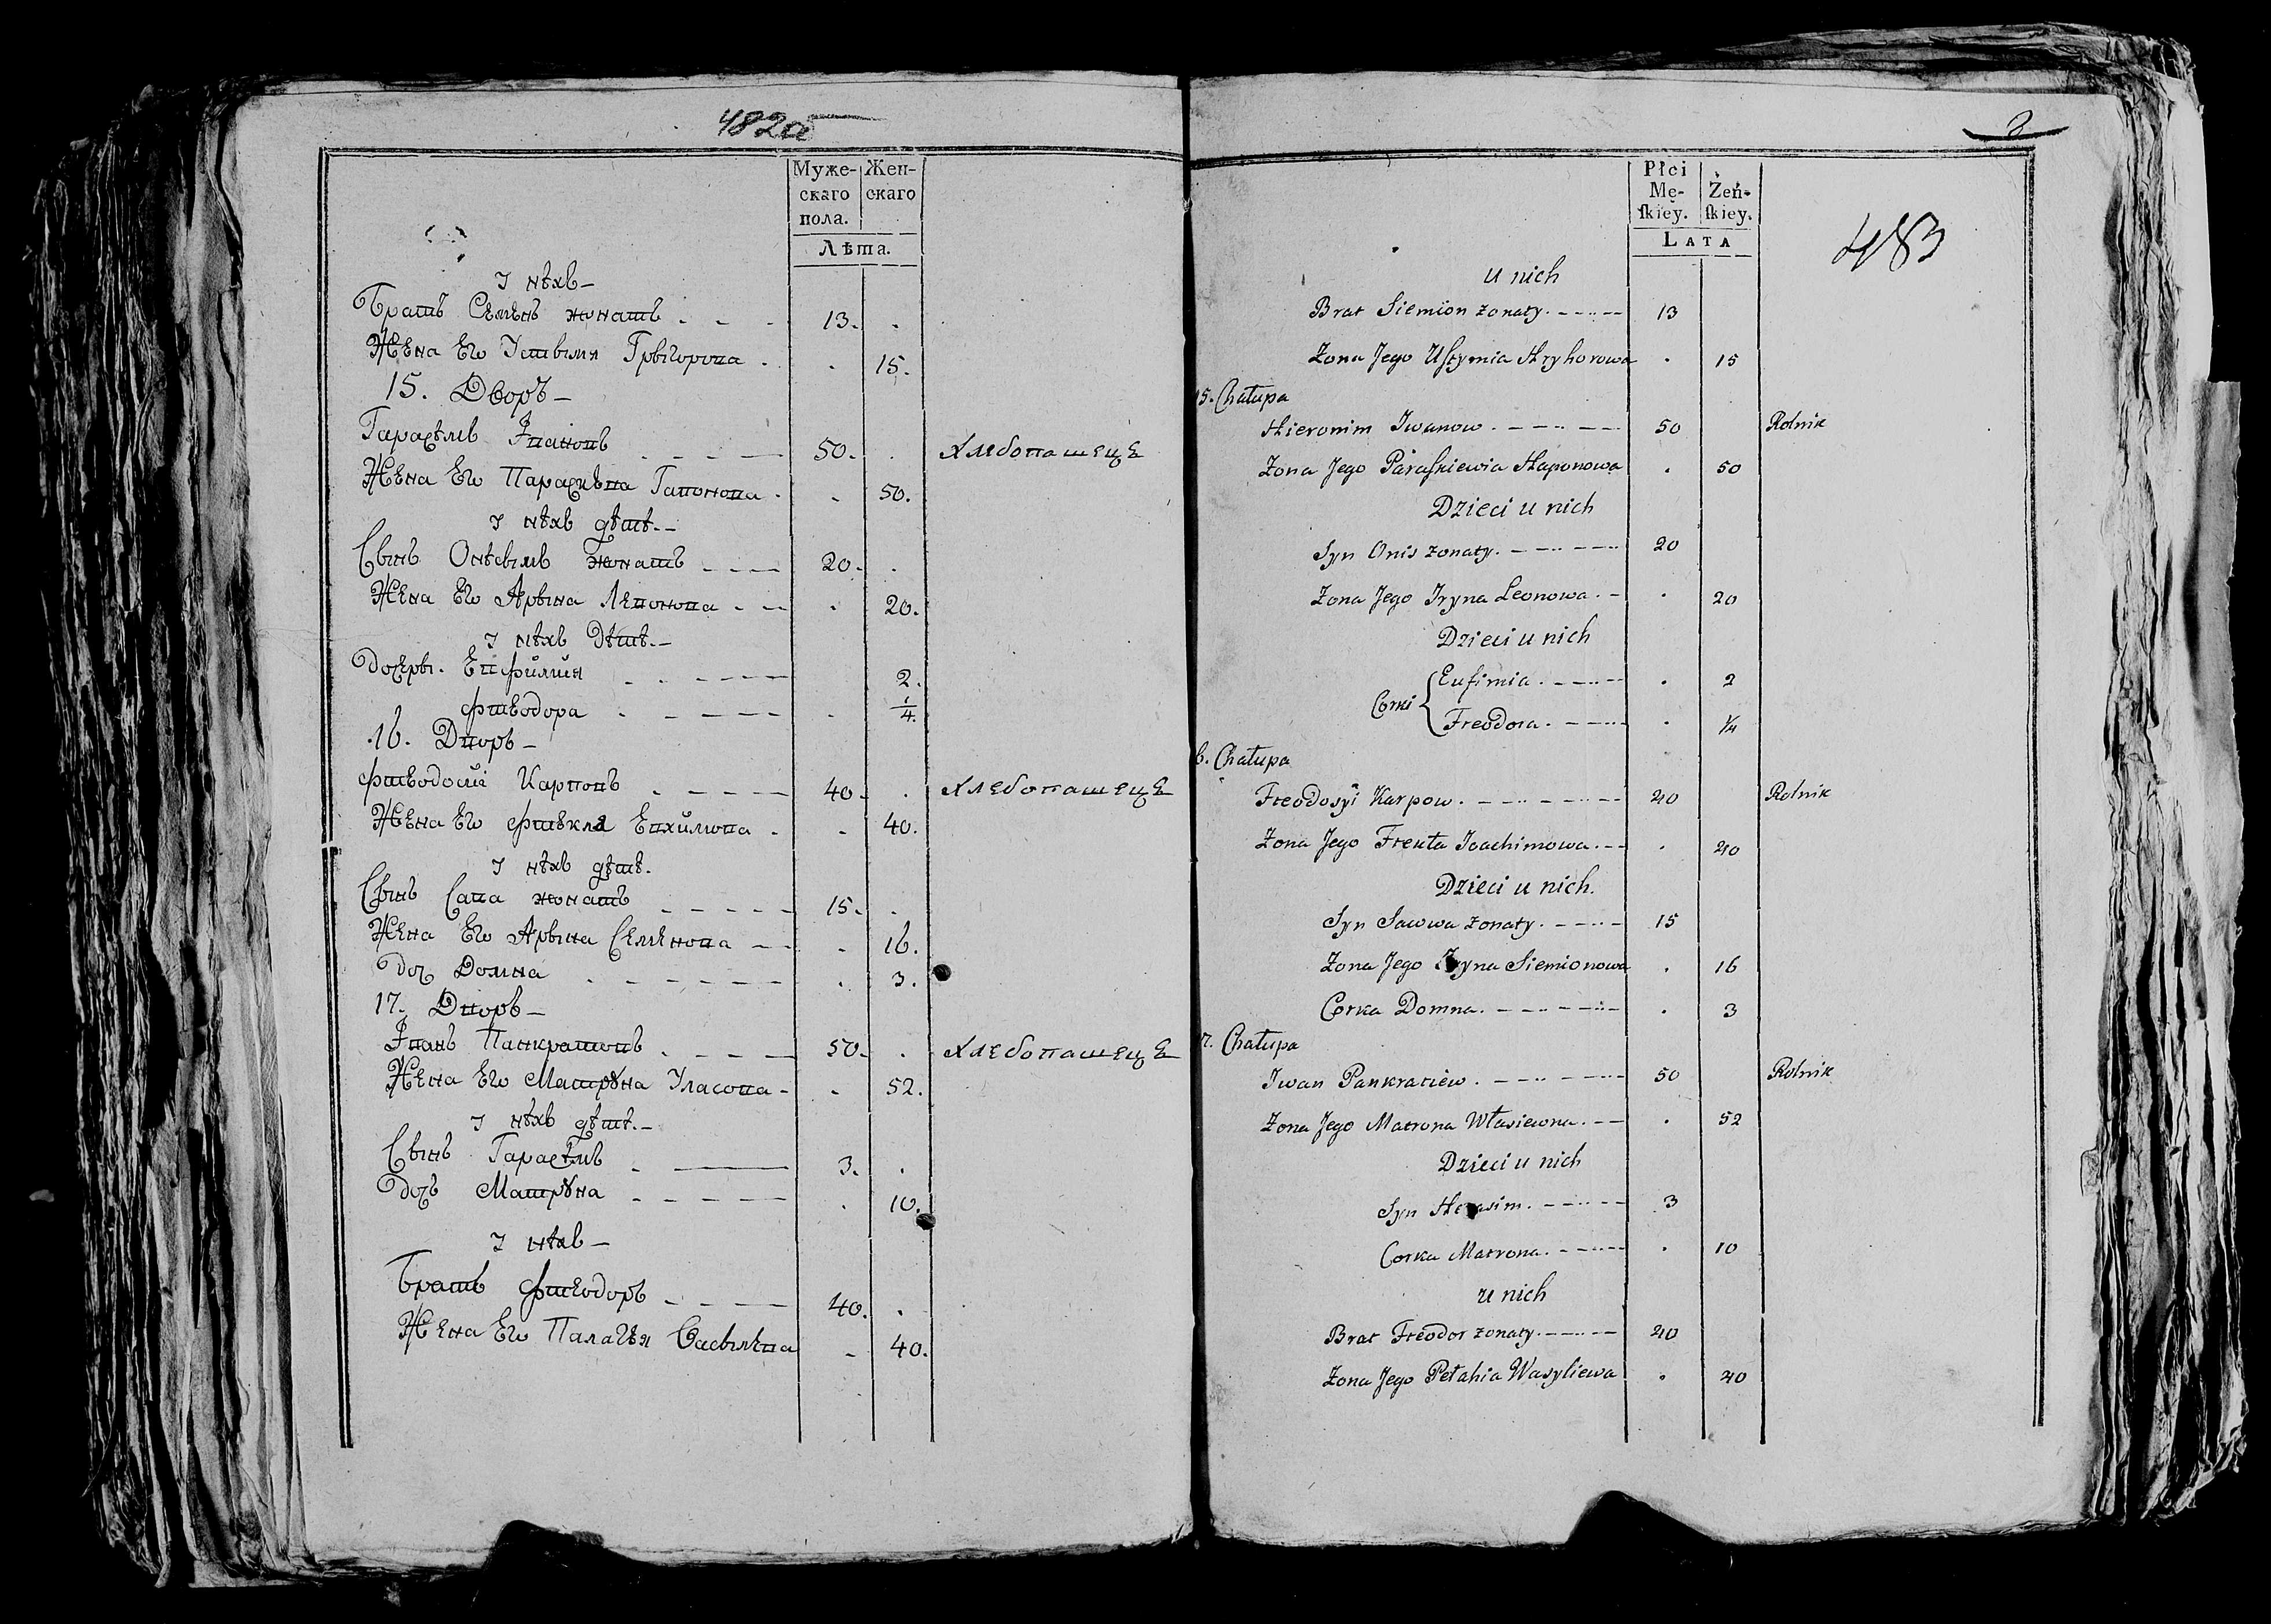 482а
Муже-
скаго
пола.
Жен-
скаго
Лѣта.
У нѣхъ
Братъ Семенъ жонатъ 13.
Жена Его Устымя Грыгорова 15.
15. Дворъ
Гарасѣмъ Іпановъ 50. хлебопашеце
Жена Его Параскѣва Гапонова 50.
У нѣхъ дѣтѣ.
Сынъ Онѣсымъ жонатъ 20.
Жена Его Арына Левонова 20.
У нѣхъ Дѣтѣ.
Дочеры. Евфимия 2.
Фтеодора 1/4.
16. Дворъ
Фтеодосій Карповъ 40. хлебопашеце
Жена Его Фтекла Евхимова 40.
У нѣхъ дѣтѣ.
Сынъ Сава жонатъ 15.
Жена Его Арына Семенова 16.
Доч Домна 3.
17. Дворъ
Іванъ Панкратовъ 50. хлебопашеце
Жена Его Матрѹна Уласова 52.
У нѣхъ дѣтѣ.
Сынъ Гарасѣмъ 3.
Дочъ Матрѹна 10.
У нѣхъ
Братъ Фтеодоръ 40.
Жена Его Палагея Васылева 40.
2
483
Płci
Mę-
ſkiey.
Żeń-
ſkiey.
LATA
u nich
Brat Siemion żonaty 13
Żona Jego Uſtymia Hryhorowa 15
15. Chałupa
Hieronim Iwanow 50 Rolnik
Żona Jego Paraſkiewia Haponowa 50
Dzieci u nich
Syn Onis żonaty 20
Żona Jego Iryna Leonowa 20
Dzieci u nich
Corki
Eufimia 2
Fteodora 1/4
6. Chałupa
Fteodosyi Karpow 40 Rolnik
Żona Jego Ftekła Joachimowa 40
Dzieci u nich.
Syn Sawwa żonaty 15
Żona Jego Iryna Siemionowa 16
Corka Domna 3
7. Chałupa
Iwan Pankratiew 50 Rolnik
Żona Jego Matrona Własiewna 52
Dzieci u nich
Syn Herasim 3
Corka Matrona 10
u nich
Brat Fteodor żonaty 40
Żona Jego Pełahia Wasyliewa 40